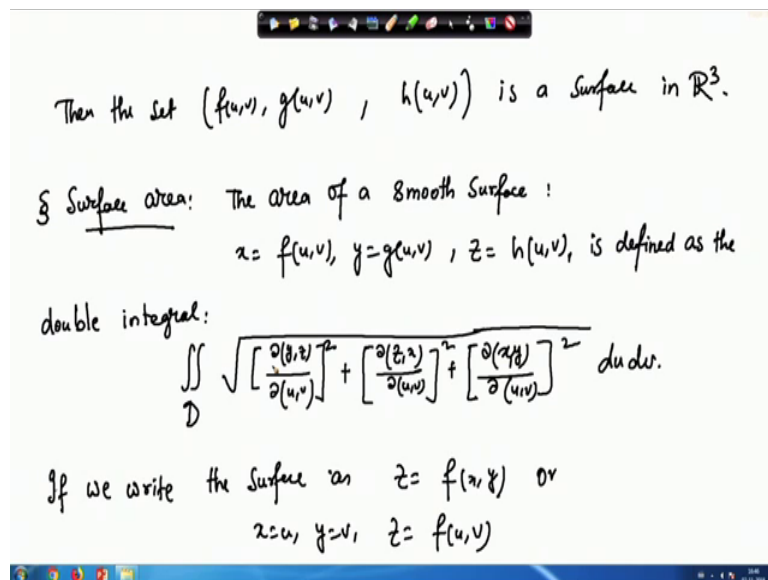 Then the set (f(u,v), g(u,v) , h(u,v)) is a surface in ℝ³.
§ Surface area: The area of a smooth surface :
x = f(u,v), y = g(u,v) , z = h(u,v), is defined as the
double integral:
∬_D √([∂(y,z)/∂(u,v)]² + [∂(z,x)/∂(u,v)]² + [∂(x,y)/∂(u,v)]²) du dv.
If we write the surface as z = f(x,y) or
x=u, y=v, z = f(u,v)